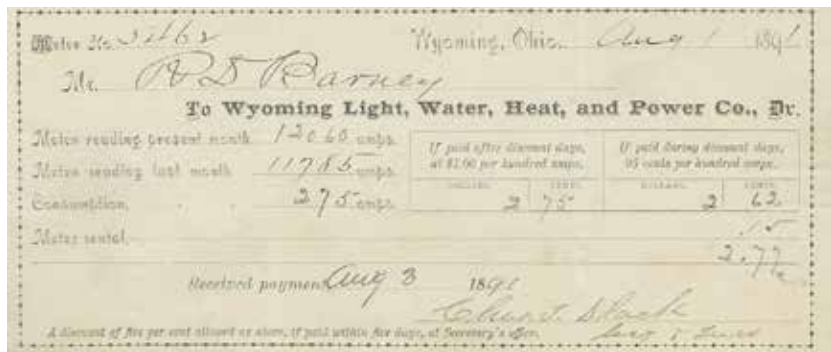 Meter No. 5462 Wyoming, Ohio, Aug 1 1891
Mr. R D Barney
To Wyoming Light, Water, Heat, and Power Co., Dr.
Meter reading present month 12060 amps.
Meter reading last month 11785 amps.
Consumption, 275 amps.
If paid after discount days, at $1.00 per hundred amps.
DOLLARS. CENTS.
2 75
If paid during discount days, 95 cents per hundred amps.
DOLLARS. CENTS.
2 62
Meter rental, 15
2.77
Received payment Aug 3 1891
Slack
Secy & Treas
A discount of five per cent allowed as above, if paid within five days, at Secretary's office.